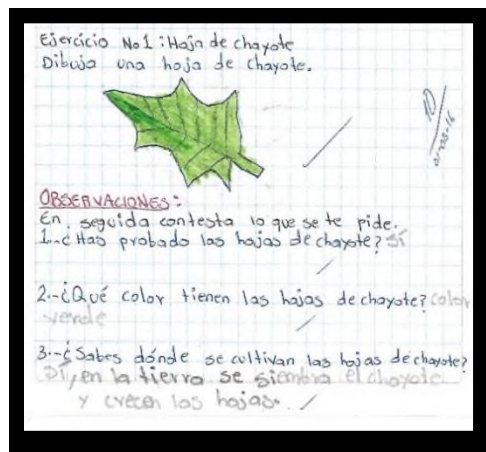 Ejercicio No 1: Hoja de chayote
Dibuja una hoja de chayote.
10
OBSERVACIONES:
En seguida contesta lo que se te pide.
1.-¿Has probado las hojas de chayote? Sí
2.-¿Qué color tienen las hojas de chayote? color
verde
3.-¿Sabes dónde se cultivan las hojas de chayote?
Sí, en la tierra se siembra el chayote
y crecen las hojas.